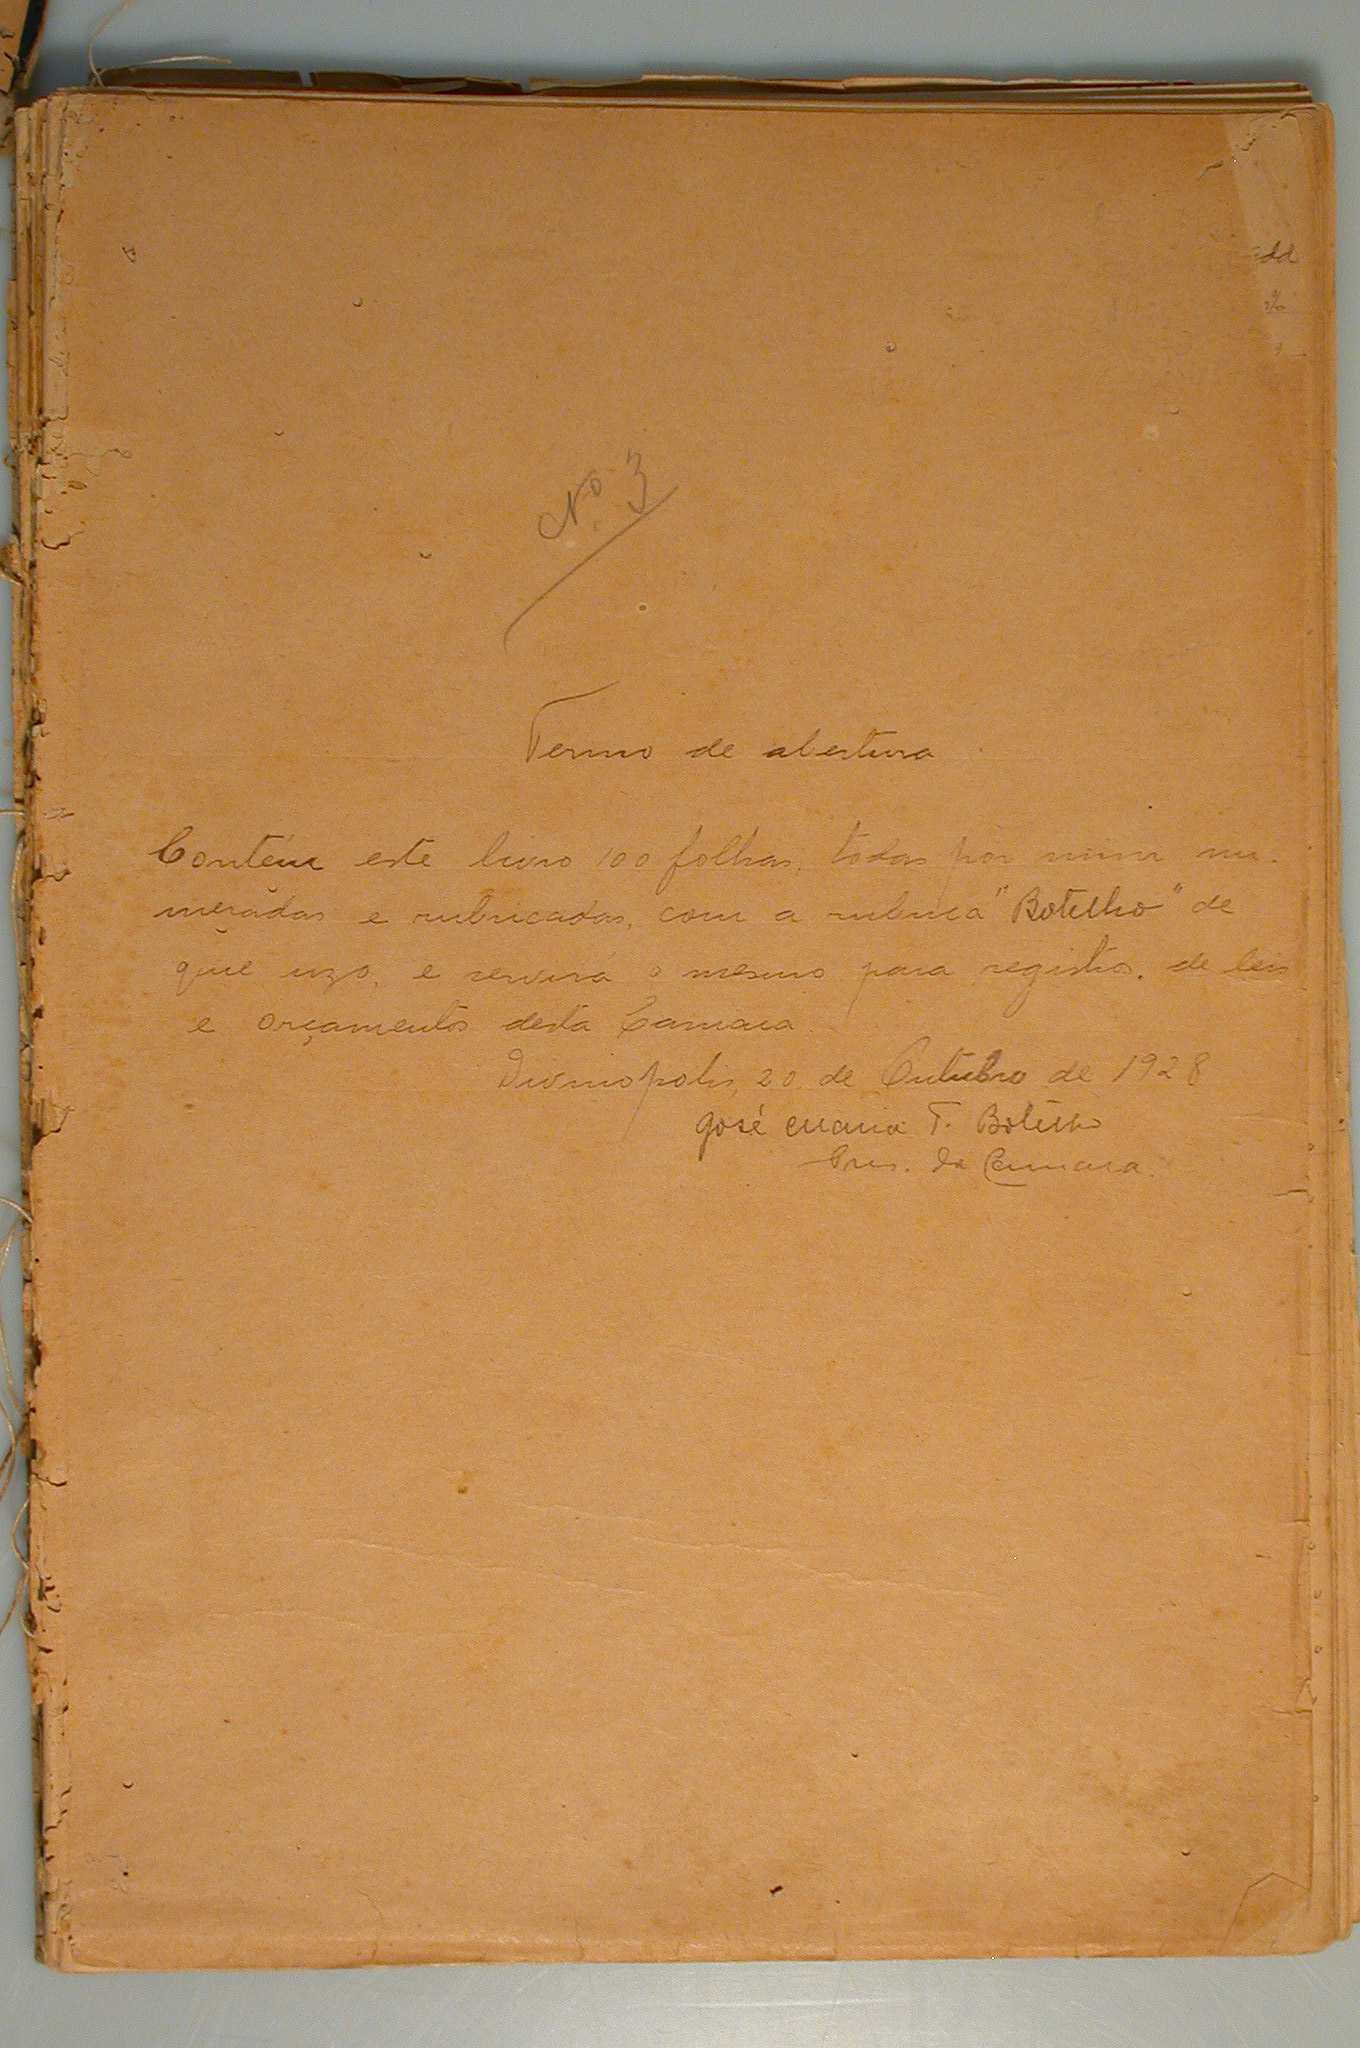 Nº 3
Termo de abertura
Contém este livro 100 folhas, todas por mim nu-
meradas e rubricadas, com a rubrica "Botelho" de
que uzo, e servirá o mesmo para registros de leis
e orçamentos desta Camara
Divinopolis, 20 de Outubro de 1928
José Maria T. Botelho
Pres. da Camara.